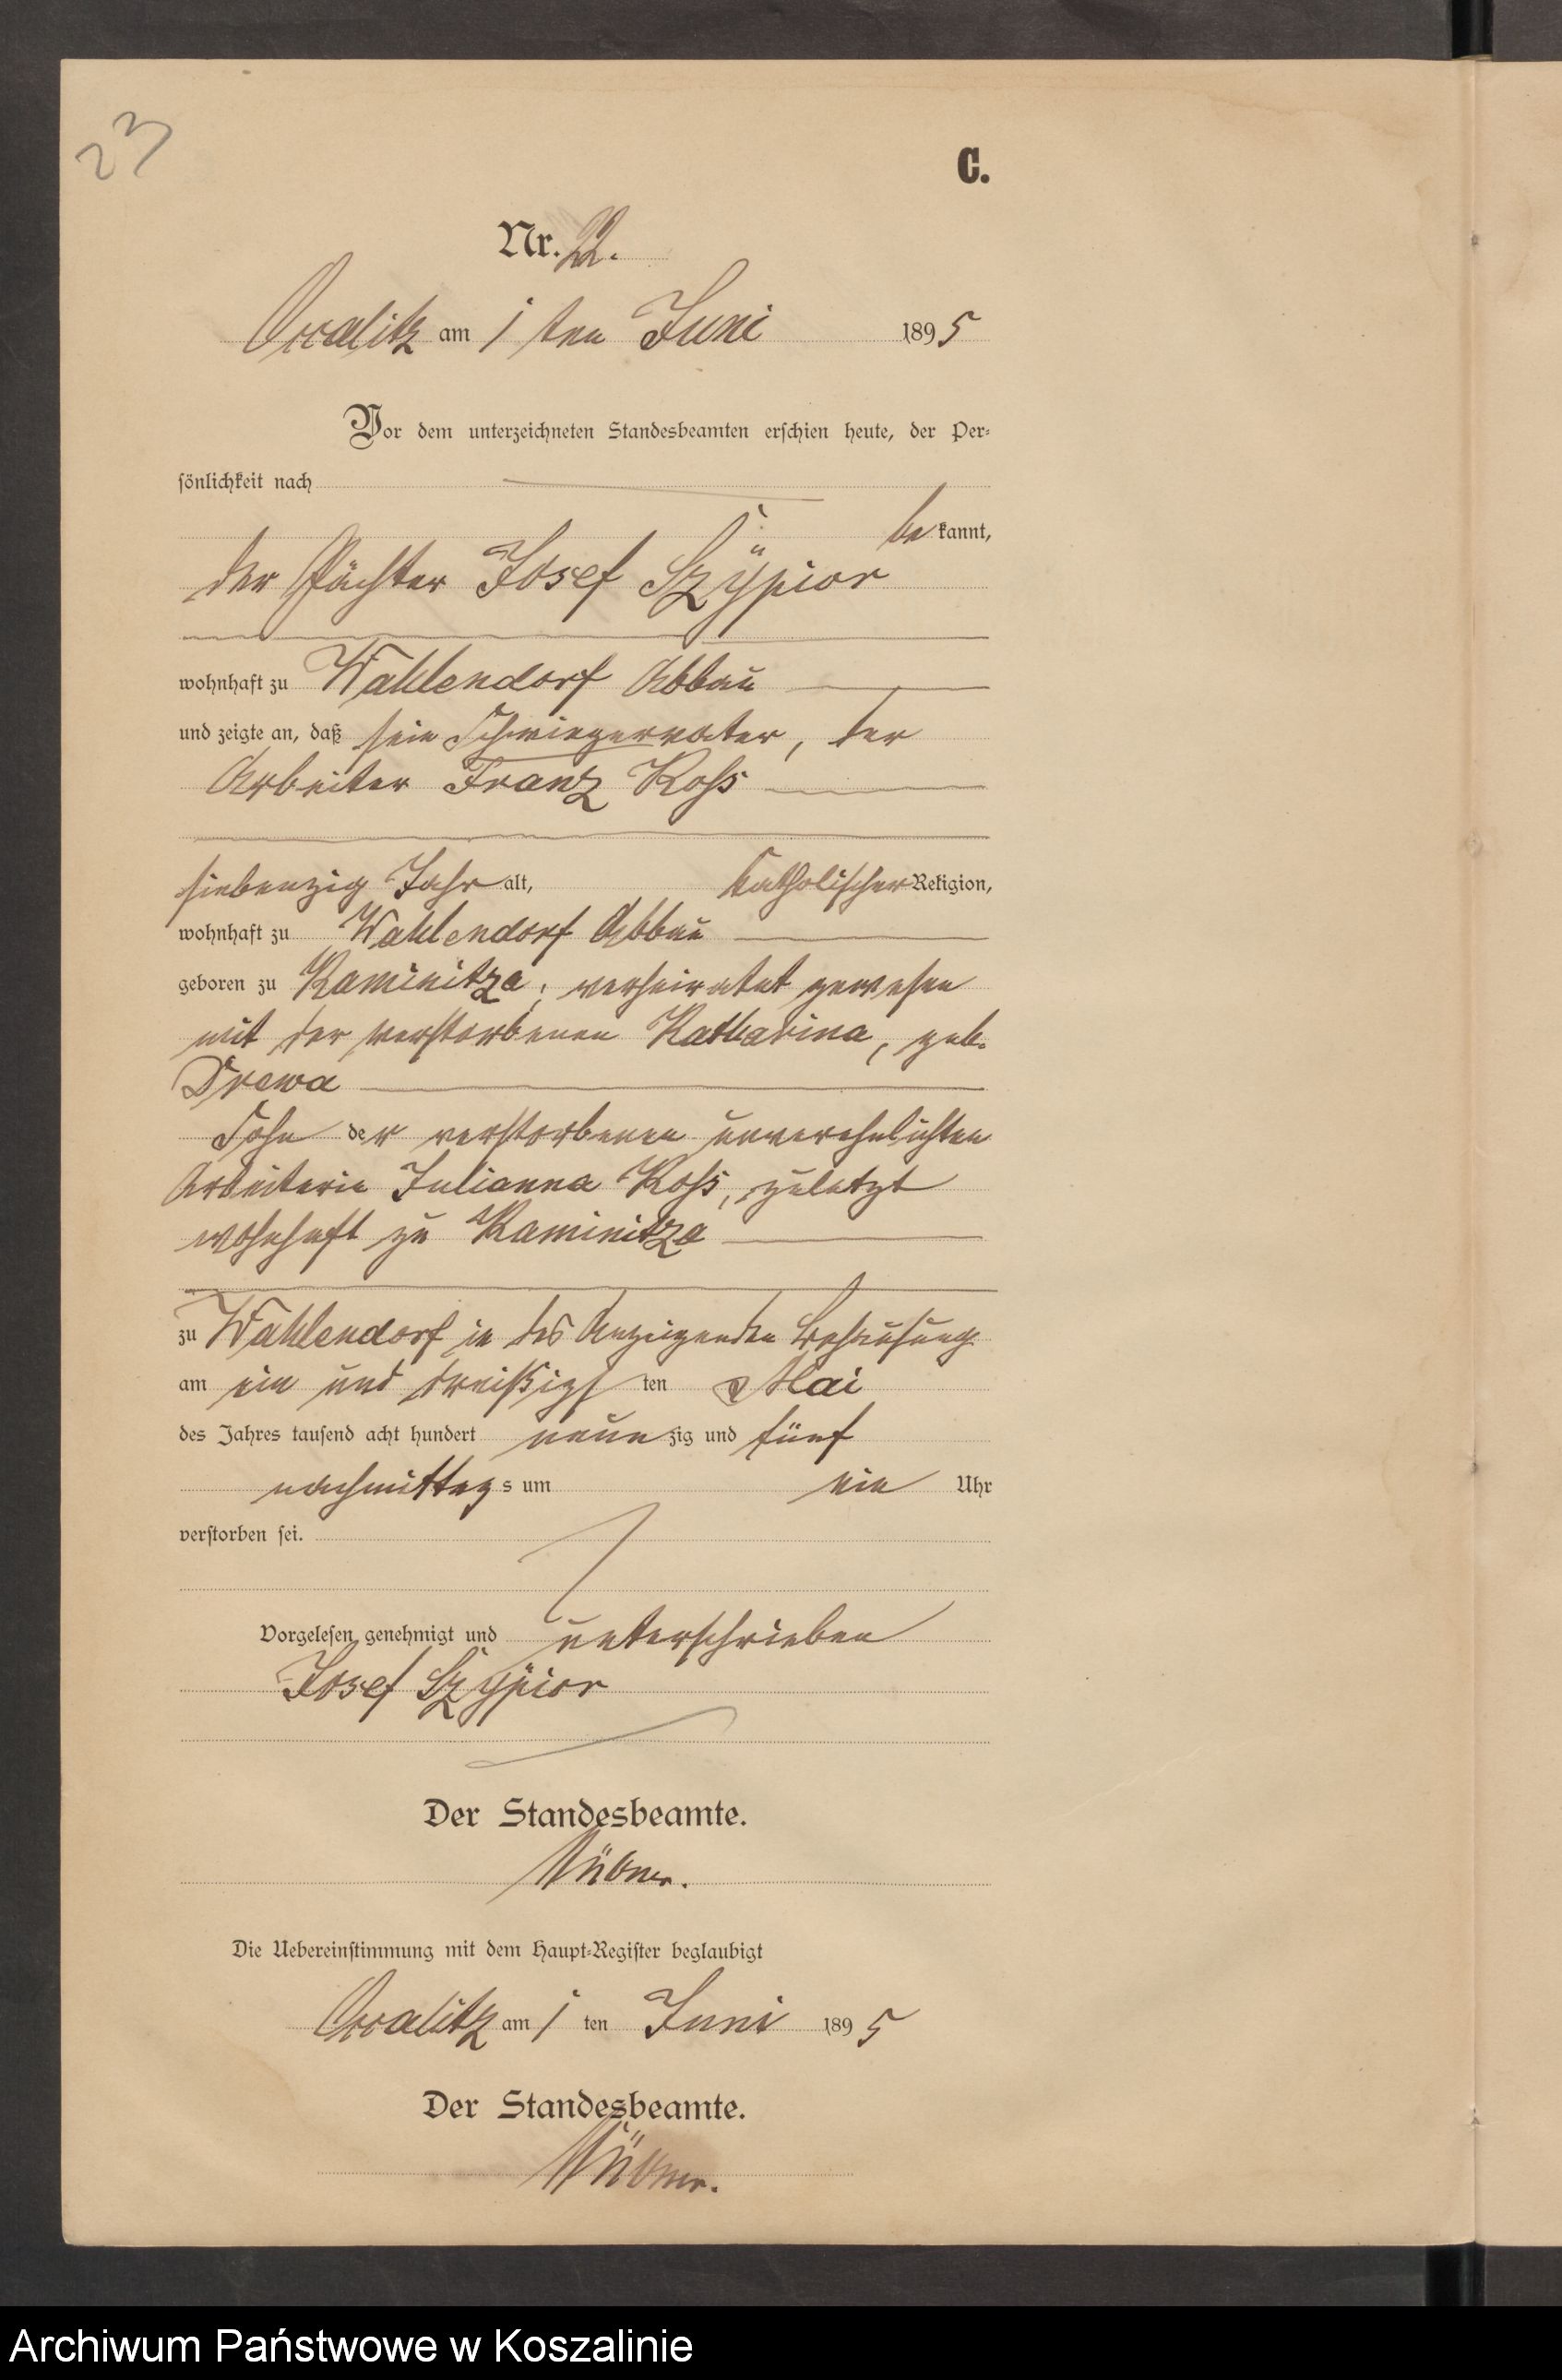 23
C.
Nr. 22.
Oslalitz am 1 ten Juni 1895
Vor dem unterzeichneten Standesbeamten erschien heute, der Per-
sönlichkeit nach
bekannt,
der Pächter Josef Szÿpior
wohnhaft zu Wahlendorf Abbau
und zeigte an, daß sein Schwiegervater, der
Arbeiter Franz Koss
siebenzig Jahr alt, katholischer Religion,
wohnhaft zu Wahlendorf Abbau
geboren zu Kaminitza, verheiratet gewesen
mit der verstorbenen Katharina, geb.
Drewa
Sohn der verstorbenen unverehelichten
Arbeiterin Julianna Koss, zuletzt
wohnhaft zu Kaminitza
zu Wahlendorf in des Anzeigenden Behausung
am ein und dreißigsten Mai
des Jahres tausend acht hundert neunzig und fünf
nachmittags um ein Uhr
verstorben sei.
Vorgelesen, genehmigt und unterschrieben
Josef Szÿpior
Der Standesbeamte.
Die Uebereinstimmung mit dem Haupt-Register beglaubigt
am 1 ten Juni 1895
Der Standesbeamte.
Archiwum Państwowe w Koszalinie